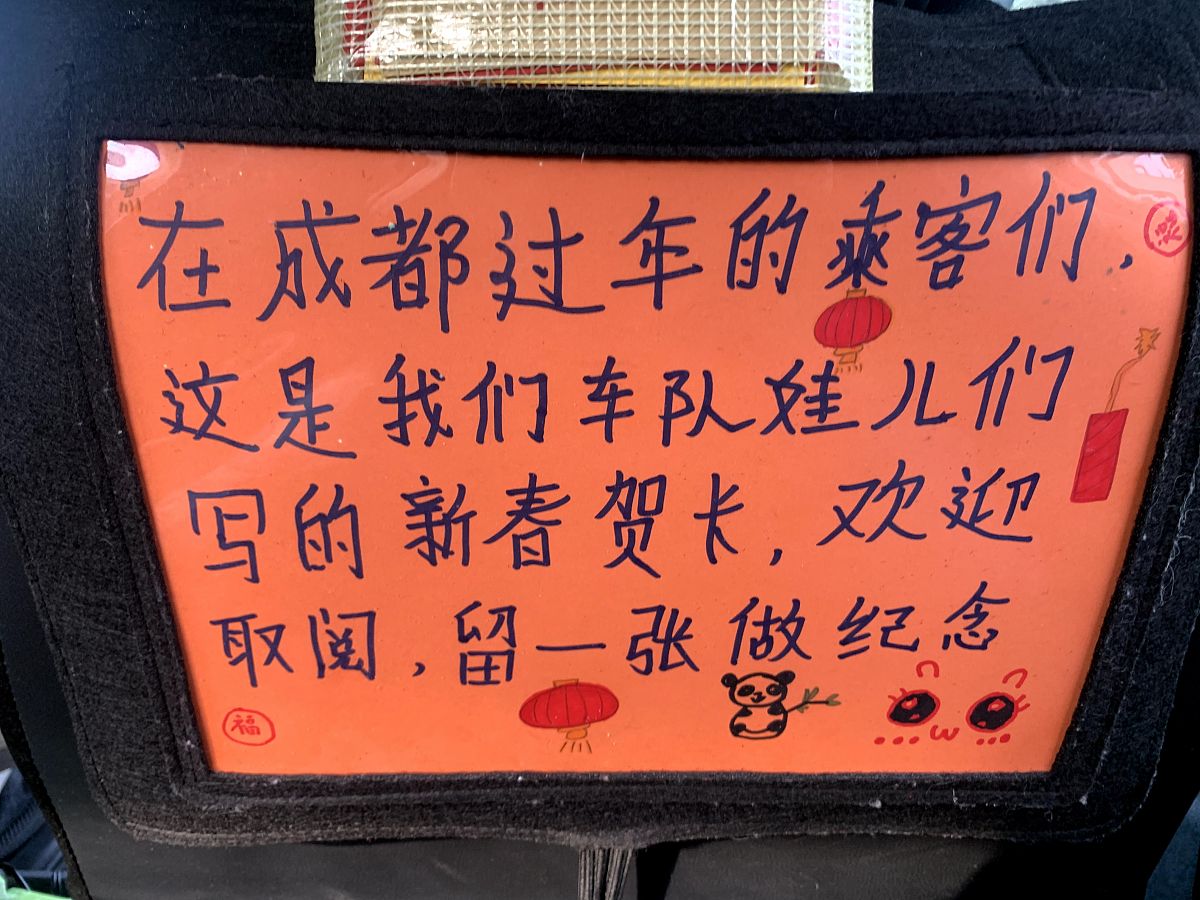 在成都过年的乘客们，
这是我们车队娃儿们
写的新春贺卡，欢迎
取阅，留一张做纪念
福